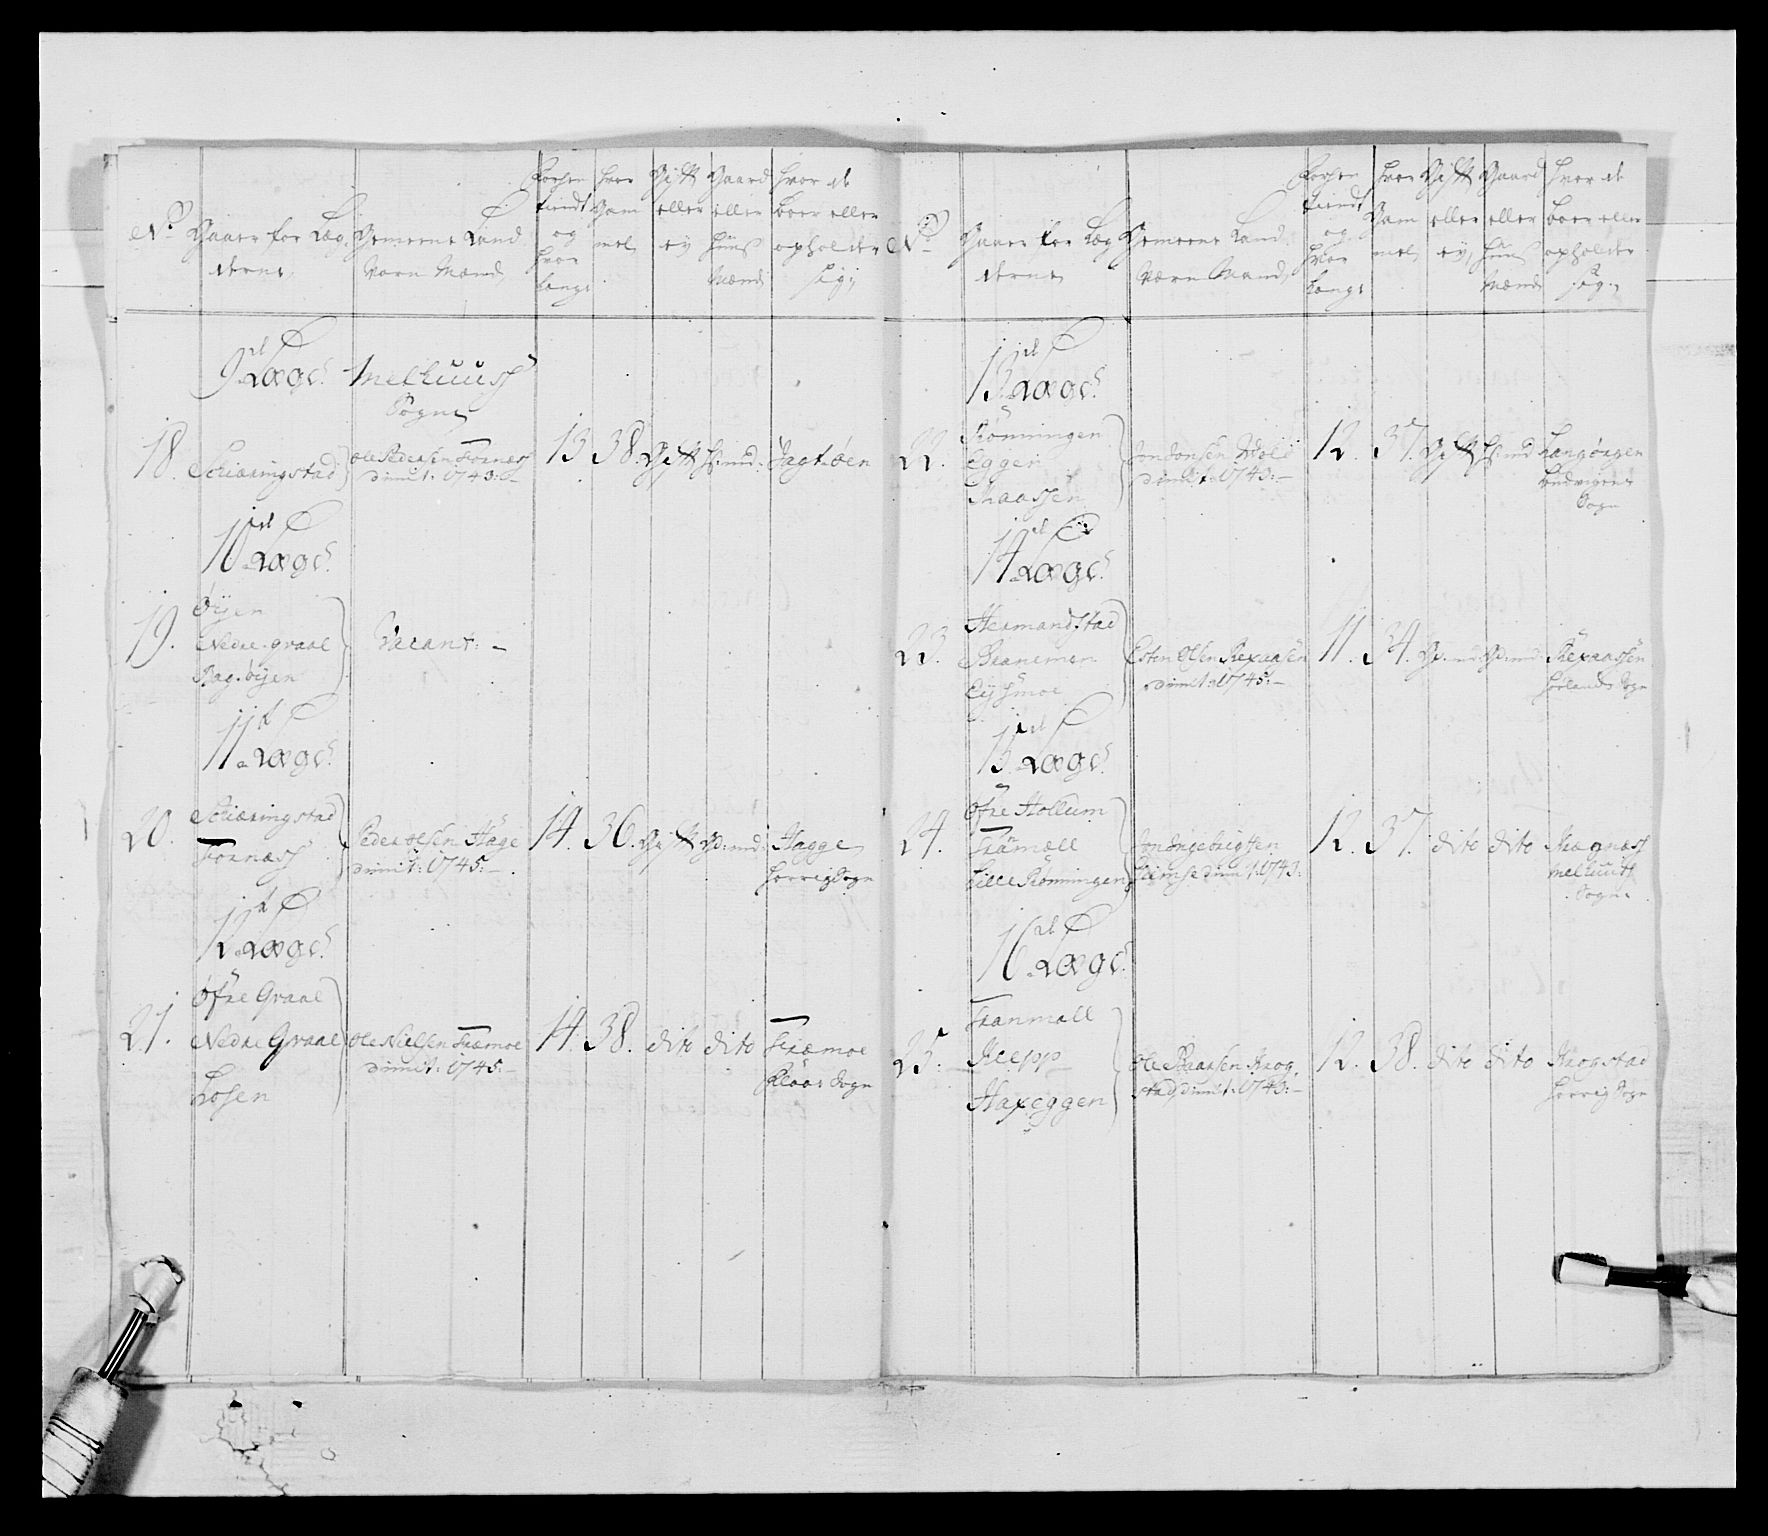 No
Gaarer for Læg
derne
Gemeene Land
Værn Mænd
Forhen
tiendt
og
hvor
længe
hvor
Gam
mel
Gift
eller
ey
Gaard
eller
Huus
Mænd
hvor de
boer eller
opholder
sig
9de Lægd. Melhuus
Sogn
18.
Schiæringstad
Ole Pedersen Fornæs
dimit: 1743:
13 38. Gift Hs: md: Jagtøen
10de Lægd.
19.
Øÿen
Nedre graae
Bagøÿen
Vacant: -
11te Lægd.
20.
Schiæringstad
Fornæss
Peder Olsen Hage
dimit: 1745: -
14. 36. Gift Gd: md: Hagge
Horrig Sogn
12te Lægd.
21.
Øfre Graae
Nedre Graae
Losen
Ole Nielsen Træmoe
dimit: 1745: -
14. 38. dito dito Træmoe
Sogn
No
Gaarer for Læg
derne
Gemeene Land
Værn Mænd
Forhen
tiendt
og
hvor
længe
hvor
Gam
mel
Gift
eller
ey
Gaard
eller
Huus
Mænd
hvor de
boer eller
opholder
sig
13de Lægd.
22.
Rønningen
Eggen
Jon Jonsen Wold
dimit: 1743: -
12. 37. Gift Hs: md Langørgen
Sogn
14de Lægd.
23.
Hermandstad
Eysmoe
Esten Olsen Rexaasen
dimit: 1745: -
11. 34. Gd: md: Rexaassen
Hørlands Sogn
15de Lægd.
24.
Øfre Hollum
Tranmæll
Lille Rønningen
Jon Ingebrigtsen
dimit: 1743:
12. 37. dito dito Kregnæss
Melhuus
Sogn
16de Lægd.
25.
Tranmæll
Klepp
Haxeggen
Ole Krog
stad, dimit: 1743: -
12. 38. dito dito Krogstad
Horrig Sogn